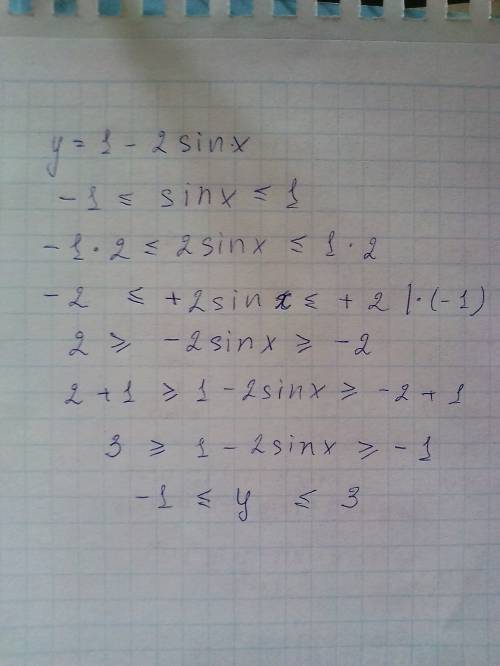 y = 1 - 2 sin x
-1 ≤ sin x ≤ 1
-1 · 2 ≤ 2 sin x ≤ 1 · 2
-2 ≤ +2 sin x ≤ +2 | · (-1)
2 ≥ -2 sin x ≥ -2
2 + 1 ≥ 1 - 2 sin x ≥ -2 + 1
3 ≥ 1 - 2 sin x ≥ -1
-1 ≤ y ≤ 3